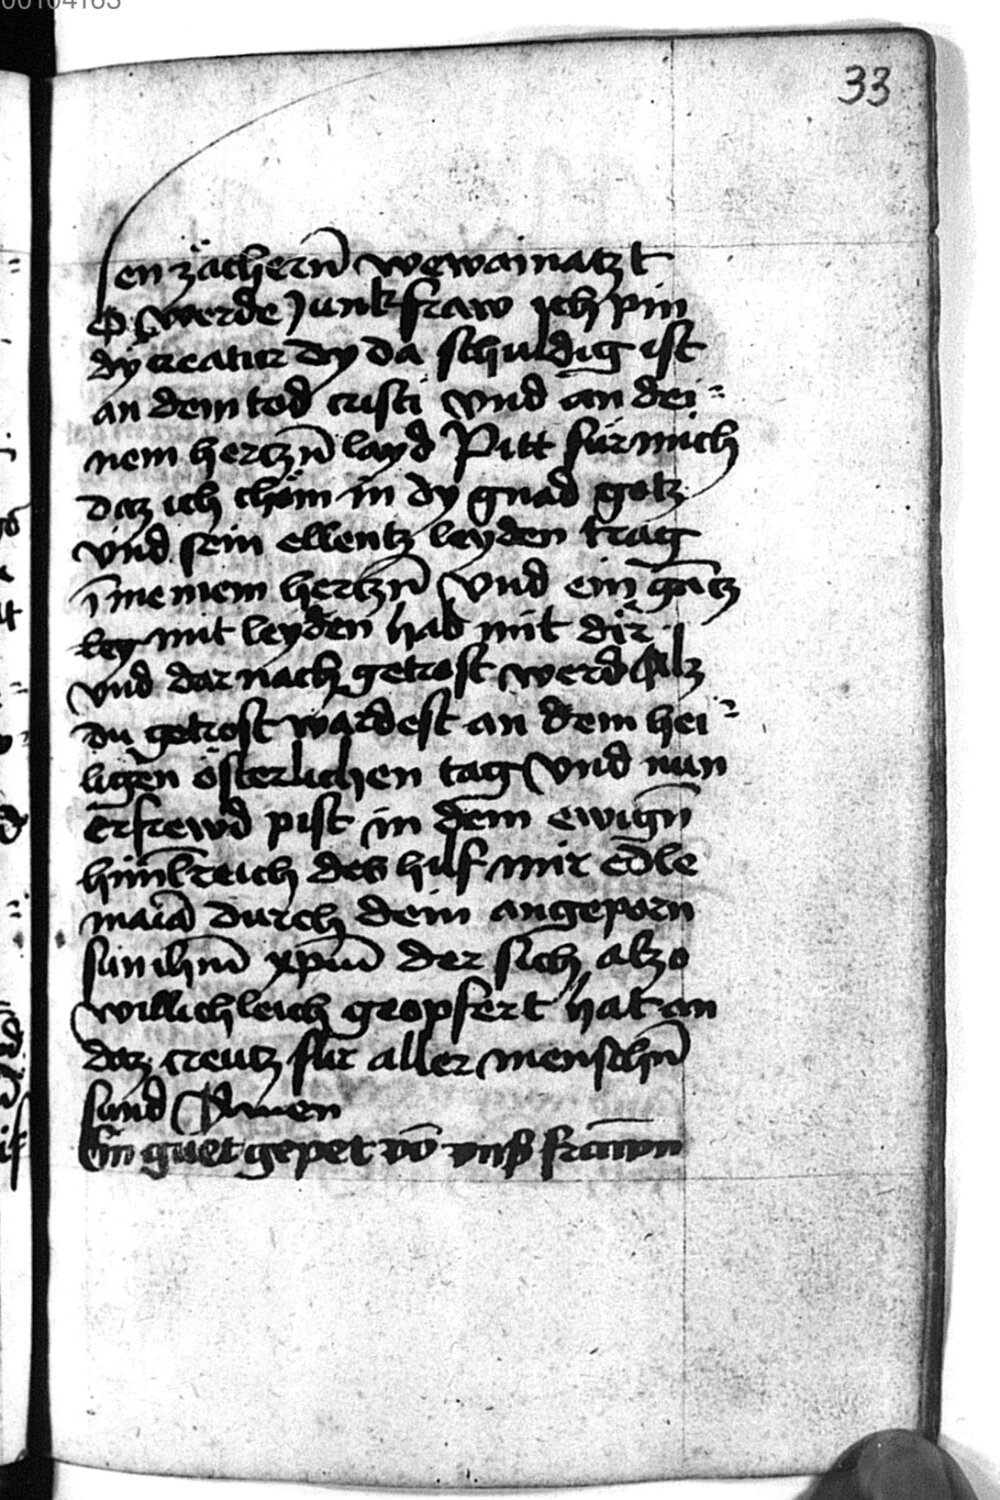 00104163
33
en zächern̄ wewainatzt
O werde Junkfraw ich pin
dÿ creatur dy da schuldig ist
an dem tod cristi vnd an dei⸗
nem hertzn̄ layd Pitt für mich
daz ich chöm in dy gnad gotz
vnd sein ellentz leyden trag
ī meinem hertzn̄ vnd ein gātz
ley mit leyden hab mit dir
vnd dar nach getrost werd Alz
du getrost wardest an dem hei⸗
ligen österlichen tag vnd nun
erfrewd pist in dem ewign̄
himb̄reich des hilf mir edle
maia durch dein angeporn
sun ihm̄ xpm̄ der sich alzo
willichleich geopfert hat an
daz creutz für aller menschn̄
sund Amen
Ein guet gepet vō vnß frawn